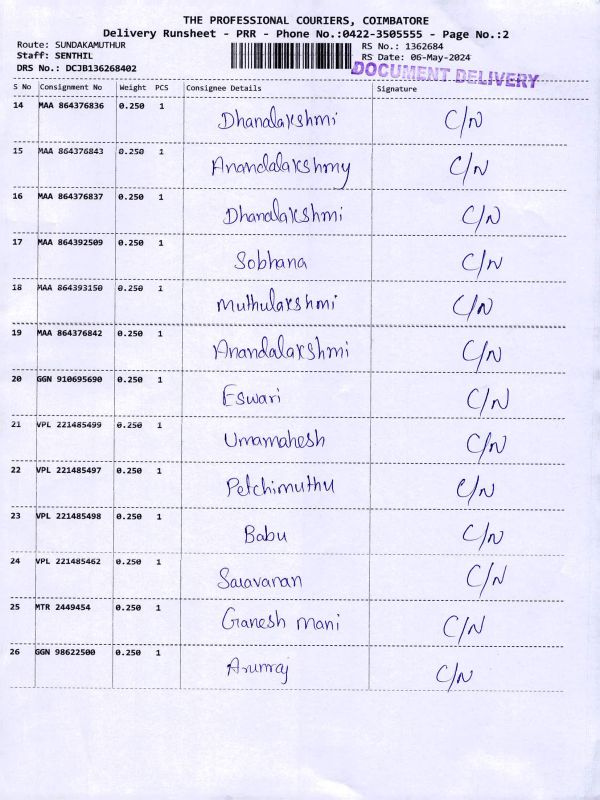 THE PROFESSIONAL COURIERS, COIMBATORE
Delivery Runsheet - PRR - Phone No.:0422-3505555 - Page No.:2
Route: SUNDAKAMUTHUR RS No.: 1362684
Staff: SENTHIL RS Date: 06-May-2024
DRS No.: DCJB136268402 DOCUMENT DELIVERY
S No Consignment No Weight PCS Consignee Details Signature
14 MAA 864376836 0.250 1 Dhanalakshmi C/N
15 MAA 864376843 0.250 1 Anandalakshmy C/N
16 MAA 864376837 0.250 1 Dhandlakshmi C/N
17 MAA 864392509 0.250 1 Sobhana C/N
18 MAA 864393150 0.250 1 Muthulakshmi C/N
19 MAA 864376842 0.250 1 Anandalakshmi C/N
20 GGN 910695690 0.250 1 Eswari C/N
21 VPL 221485499 0.250 1 Umamahesh C/N
22 VPL 221485497 0.250 1 Petchimuthu C/N
23 VPL 221485498 0.250 1 Babu C/N
24 VPL 221485462 0.250 1 Saravanan C/N
25 MTR 2449454 0.250 1 Ganesh mani C/N
26 GGN 98622500 0.250 1 Arumraj C/N